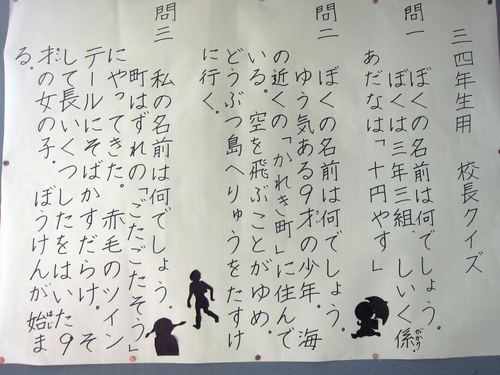 三四年生用　校長クイズ
問一　ぼくの名前は何でしょう。
ぼくは三年三組、しいく係
がかり
あだなは「十円やす」
問二　ぼくの名前は何でしょう。
ゆう気ある9才の少年。海
の近くの「かれき町」に住んで
いる。空を飛ぶことがゆめ。
どうぶつ島へりゅうをたすけ
に行く。
問三　私の名前は何でしょう。
町はずれの「ごたごたそう」
にやってきた。赤毛のツイン
テールにそばかすだらけ。そ
して長いくつしたをはいた9
才の女の子。ぼうけんが始ま
はじ
る。